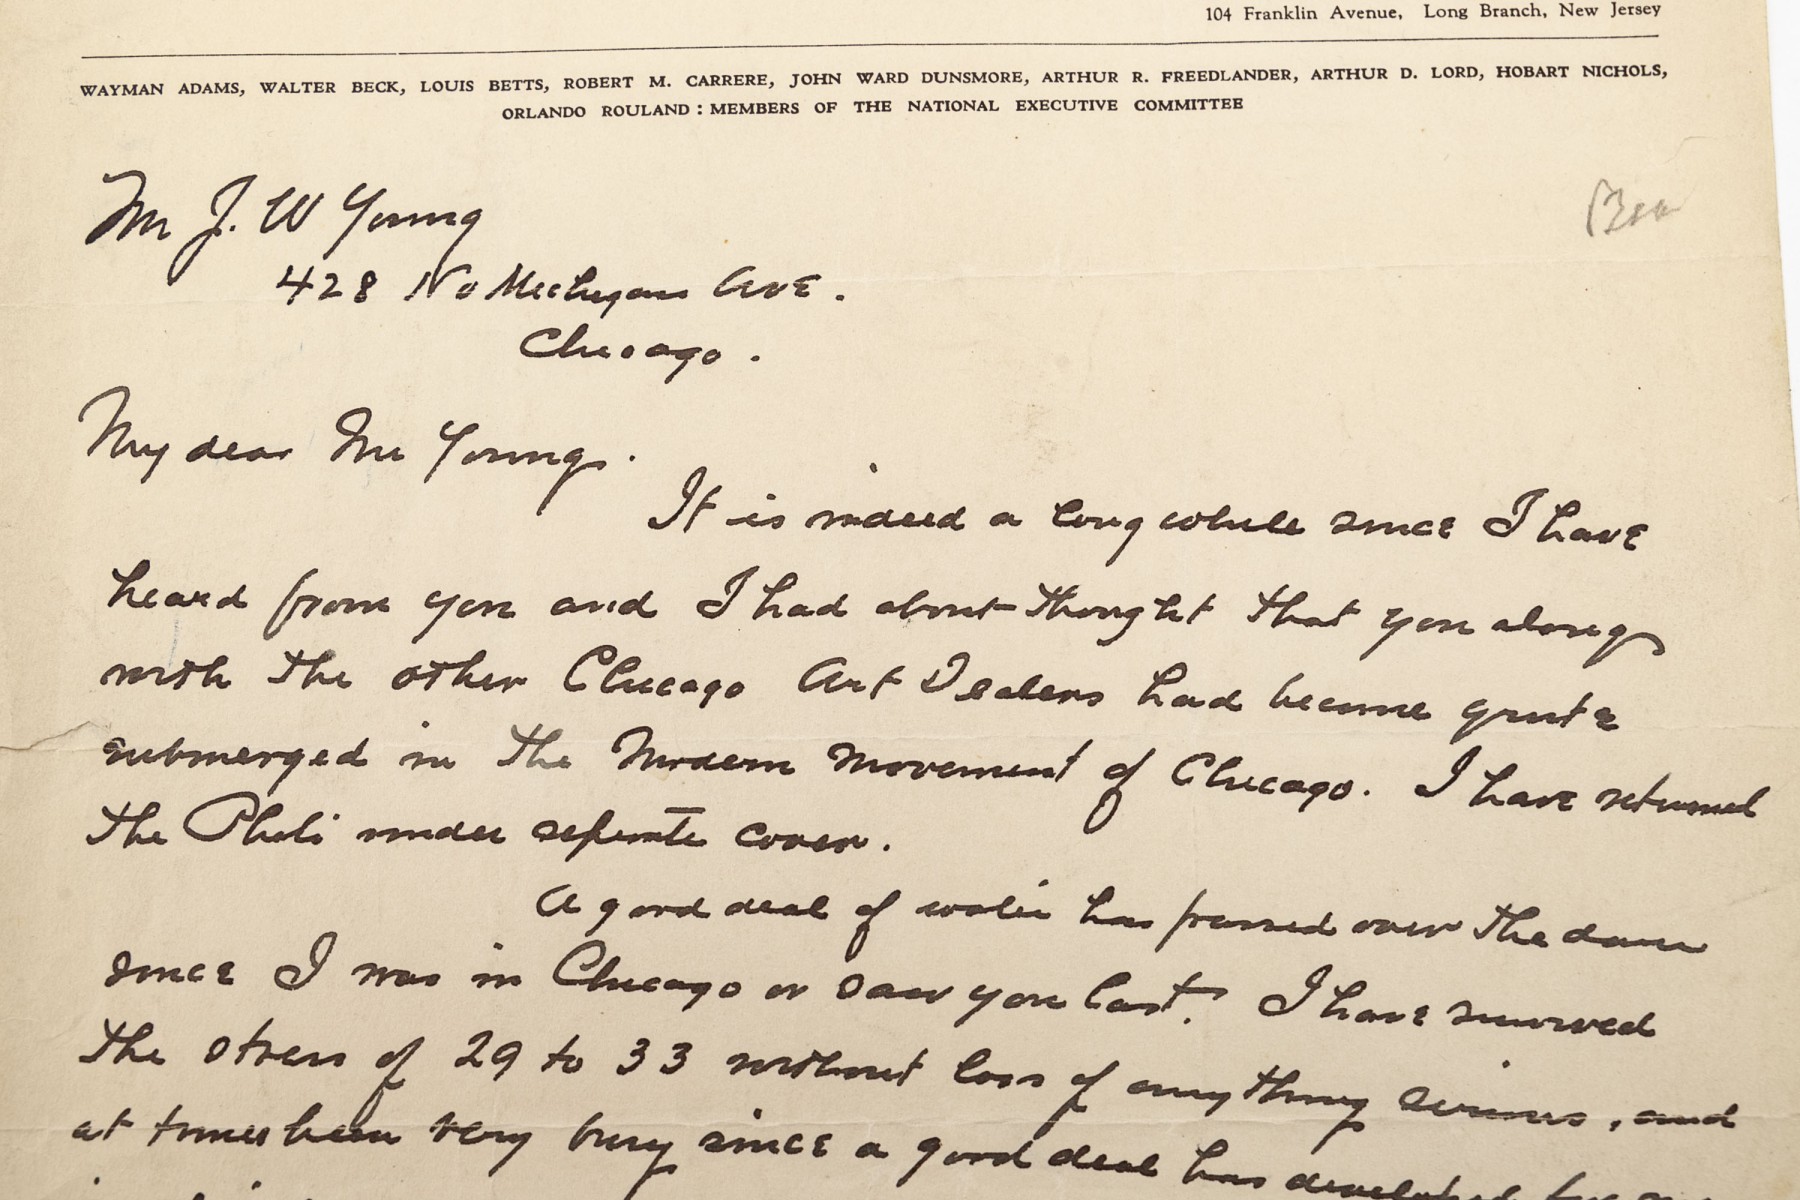 104 Franklin Avenue, Long Branch, New Jersey
WAYMAN ADAMS, WALTER BECK, LOUIS BETTS, ROBERT M. CARRERE, JOHN WARD DUNSMORE, ARTHUR R. FREEDLANDER, ARTHUR D. LORD, HOBART NICHOLS,
ORLANDO ROULAND : MEMBERS OF THE NATIONAL EXECUTIVE COMMITTEE
Mr J. W Young
428 No Michigan Ave.
Chicago.
My dear Mr Young.
It is indeed a long while since I have
heard from you and I had about thought that you along
with the other Chicago Art Dealers had become quite
submerged in the Modern movement of Chicago. I have returned
the Photo under seperate cover.
A good deal of water has passed over the dam
since I was in Chicago or saw you last. I have survived
the stress of 29 to 33 without loss of anything serious, and
at times been very busy since a good deal has developed